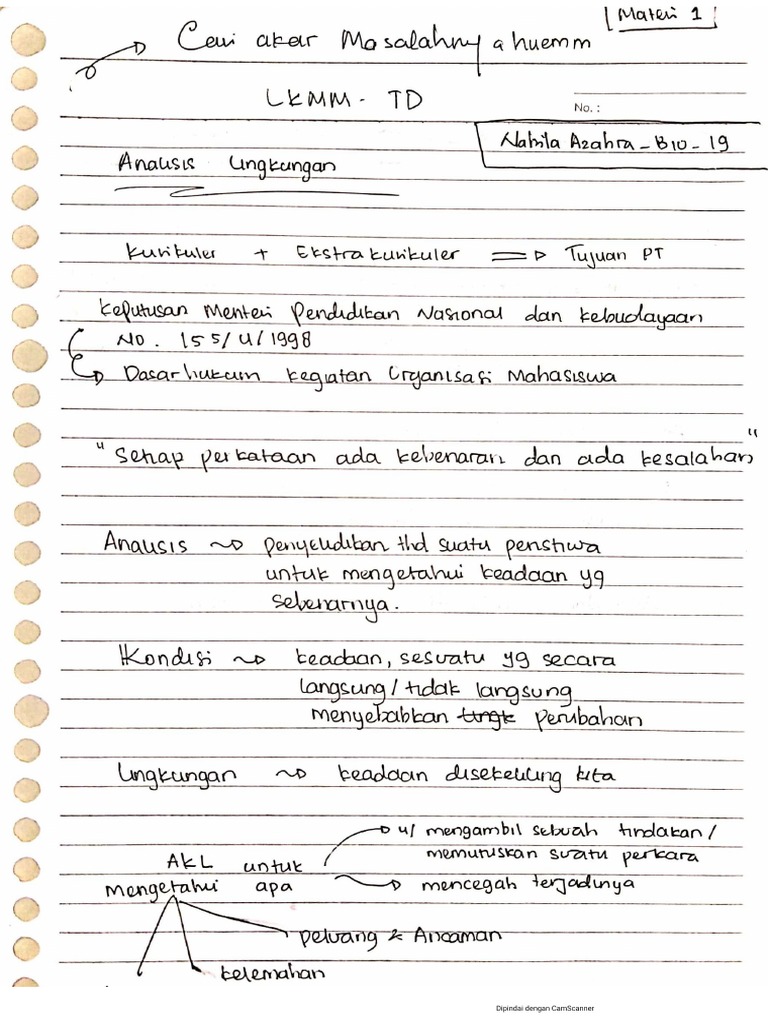 Materi 1
Cari akar Masalahnya huemm
LKMM - TD
No. :
Nabila Azahra - B10 - 19
Analisis Lingkungan
Kurikuler + Ekstrakurikuler => Tujuan PT
Keputusan Menteri Pendidikan Nasional dan kebudayaan
No. 155/U/1998
Dasar hukum kegiatan Organisasi Mahasiswa
"Setiap perkataan ada kebenaran dan ada kesalahan"
Analisis ~> penyelidikan thd suatu peristiwa
untuk mengetahui keadaan yg
sebenarnya.
Kondisi ~> keadaan, sesuatu yg secara
langsung / tidak langsung
menyebabkan tingk perubahan
Lingkungan ~> keadaan disekeliling kita
u/ mengambil sebuah tindakan /
memutuskan suatu perkara
AKL untuk
mengetahui apa
mencegah terjadinya
peluang & Ancaman
kelemahan
Dipindai dengan CamScanner